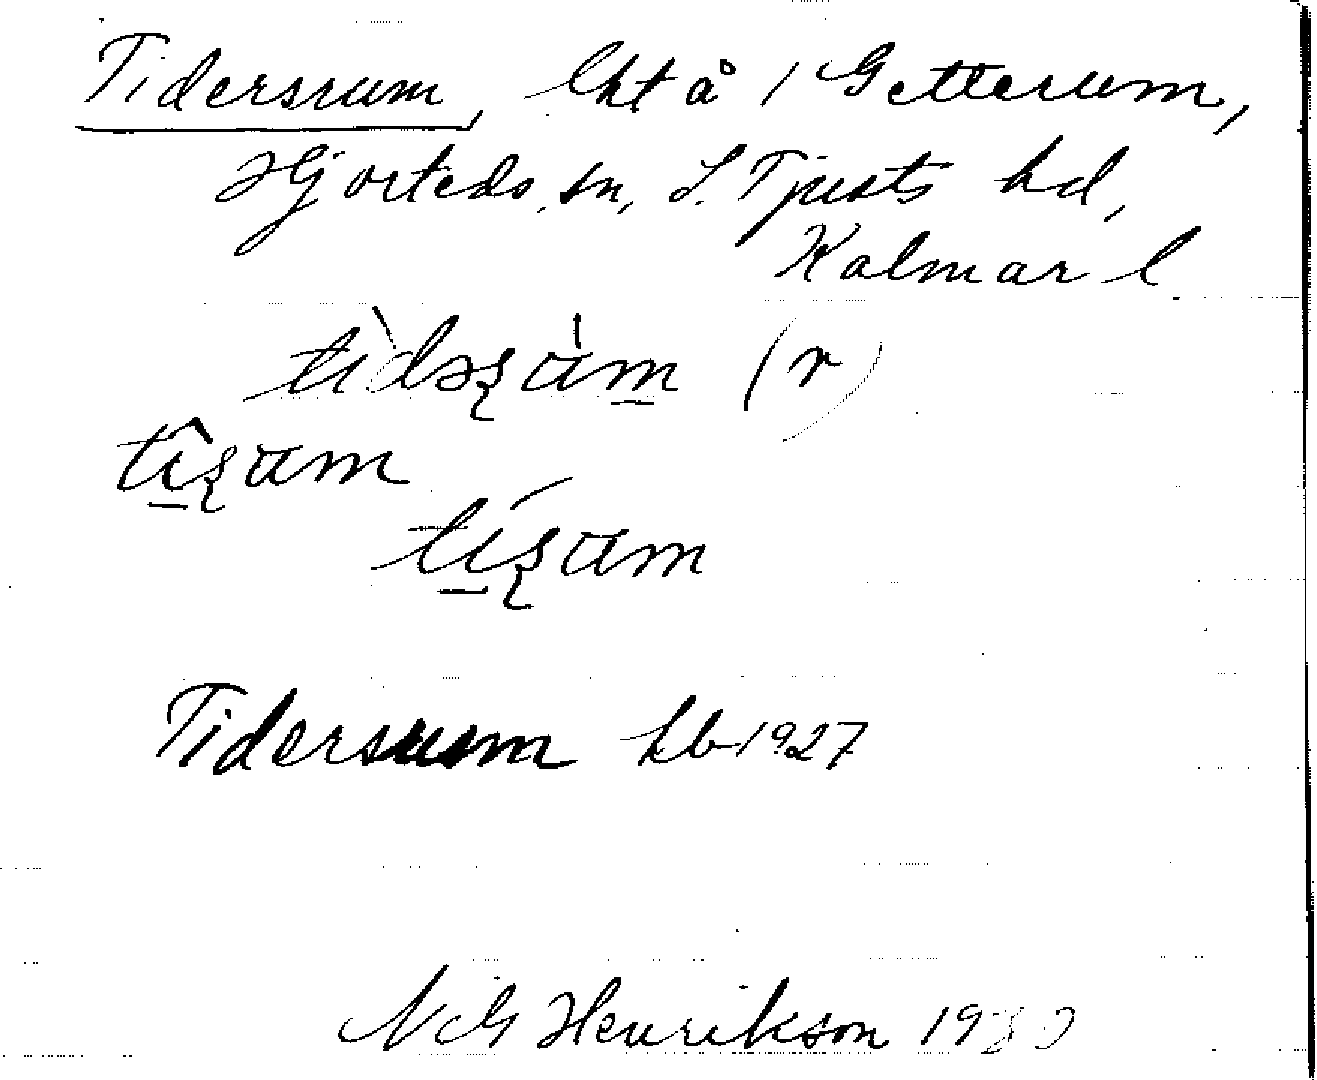 Tidersrum, lht å 1 Getterum,
Hjorteds sn, S. Tjusts hd,
Kalmar l
tìdəʂàm (r)
tîʂam
tíʂam
Tidersrum hb 1927
N G Henrikson 1930